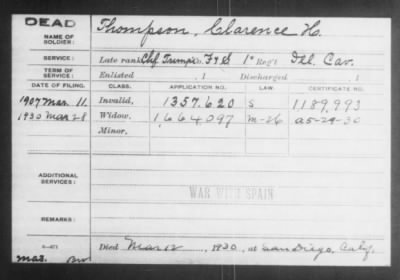 DEAD
NAME OF SOLDIER: Thompson, Clarence H.
SERVICE: Late rank Chf. Trump. Co. F & S 1st Reg't Ill. Cav.
TERM OF SERVICE: Enlisted , 1 Discharged , 1
DATE OF FILING. CLASS. APPLICATION NO. LAW. CERTIFICATE NO.
1907 Mar. 11. Invalid, 1357.620 S 1189,993
1930 Mar 28 Widow, 1,664097 M-26 A5-29-30
Minor,
ADDITIONAL SERVICES:
WAR WITH SPAIN
REMARKS:
Died Mar 12 , 1930, at San Diego, Calif.